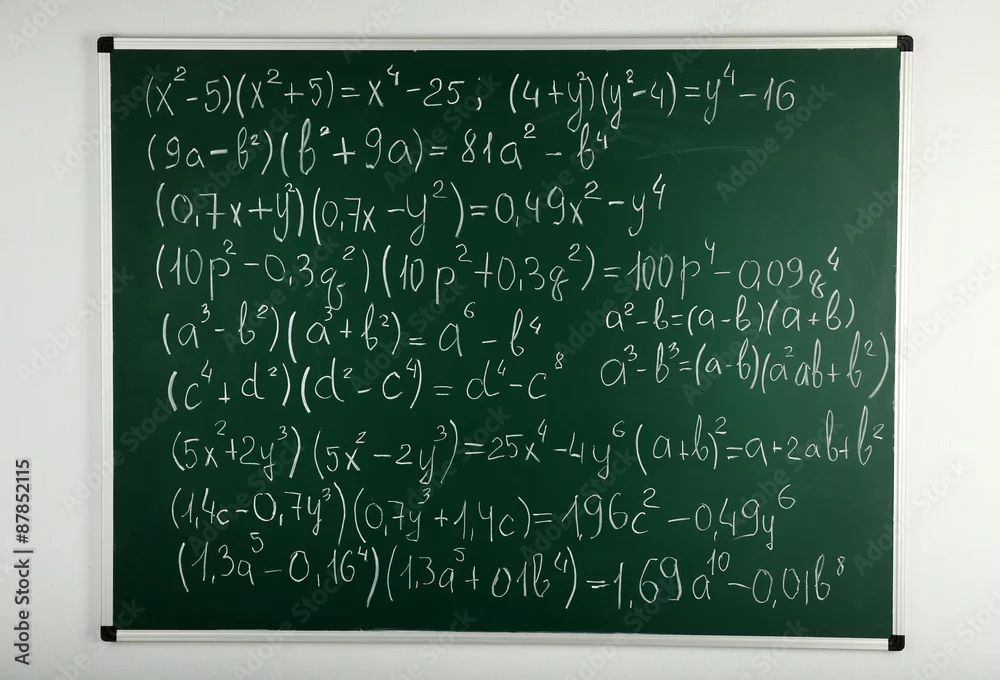 (x²-5)(x²+5)=x⁴-25; (4+y²)(y²-4)=y⁴-16
(9a-b²)(b²+9a)=81a²-b⁴
(0,7x+y²)(0,7x-y²)=0,49x²-y⁴
(10p²-0,3q²)(10p²+0,3q²)=100p⁴-0,09q⁴
(a³-b²)(a³+b²)=a⁶-b⁴
a²-b=(a-b)(a+b)
(c⁴+d²)(d²-c⁴)=d⁴-c⁸
a³-b³=(a-b)(a²ab+b²)
(5x²+2y³)(5x²-2y³)=25x⁴-4y⁶ (a+b)²=a+2ab+b²
(1,4c-0,7y³)(0,7y³+1,4c)=1,96c²-0,49y⁶
(1,3a⁵-0,16⁴)(1,3a⁵+01b⁴)=1,69a¹⁰-0,01b⁸
Adobe Stock | #87852115